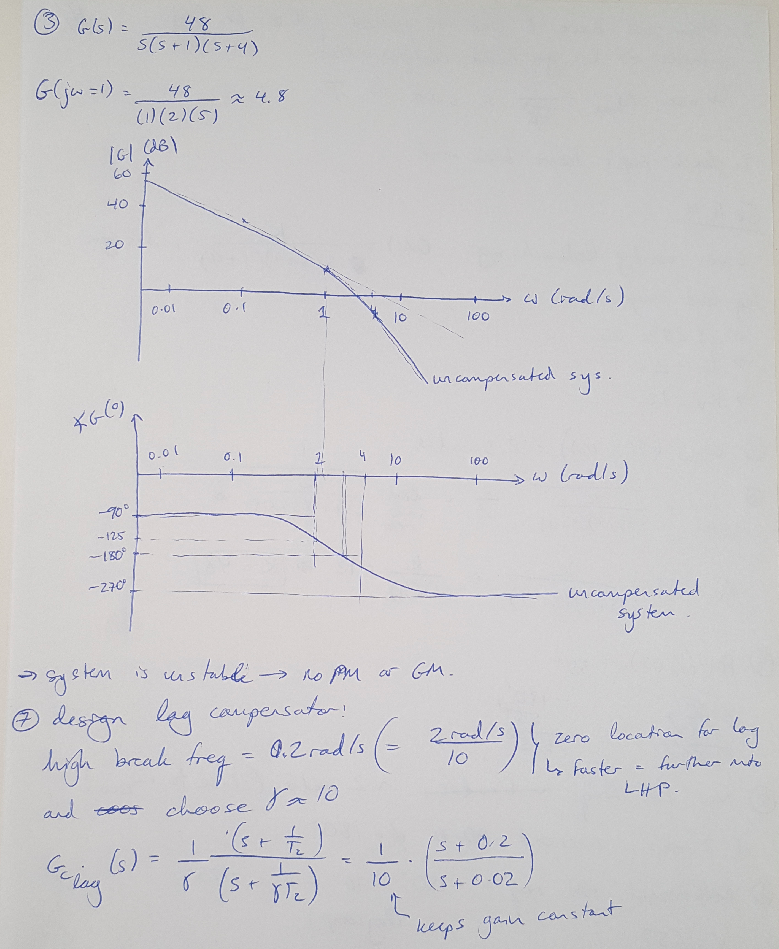 ③ G(s) = 48 / s(s+1)(s+4)
G(jω=1) = 48 / (1)(2)(5) ≈ 4.8
|G| (dB)
60
40
20
ω (rad/s)
0.01 0.1 1 10 100
uncompensated sys.
∡G(°)
0.01 0.1 1 4 10 100
ω (rad/s)
-90°
-125
-180°
-270°
uncompensated
system.
⇒ system is unstable → no PM or GM.
⑦ design lag compensator!
high break freq = 0.2 rad/s (= 2 rad/s / 10) } zero location for lag
↳ faster = further into
LHP.
and choose γ ≈ 10
Gc lag (s) = 1/γ (s + 1/T2) / (s + 1/γT2) = 1/10 · (s + 0.2 / s + 0.02)
keeps gain constant